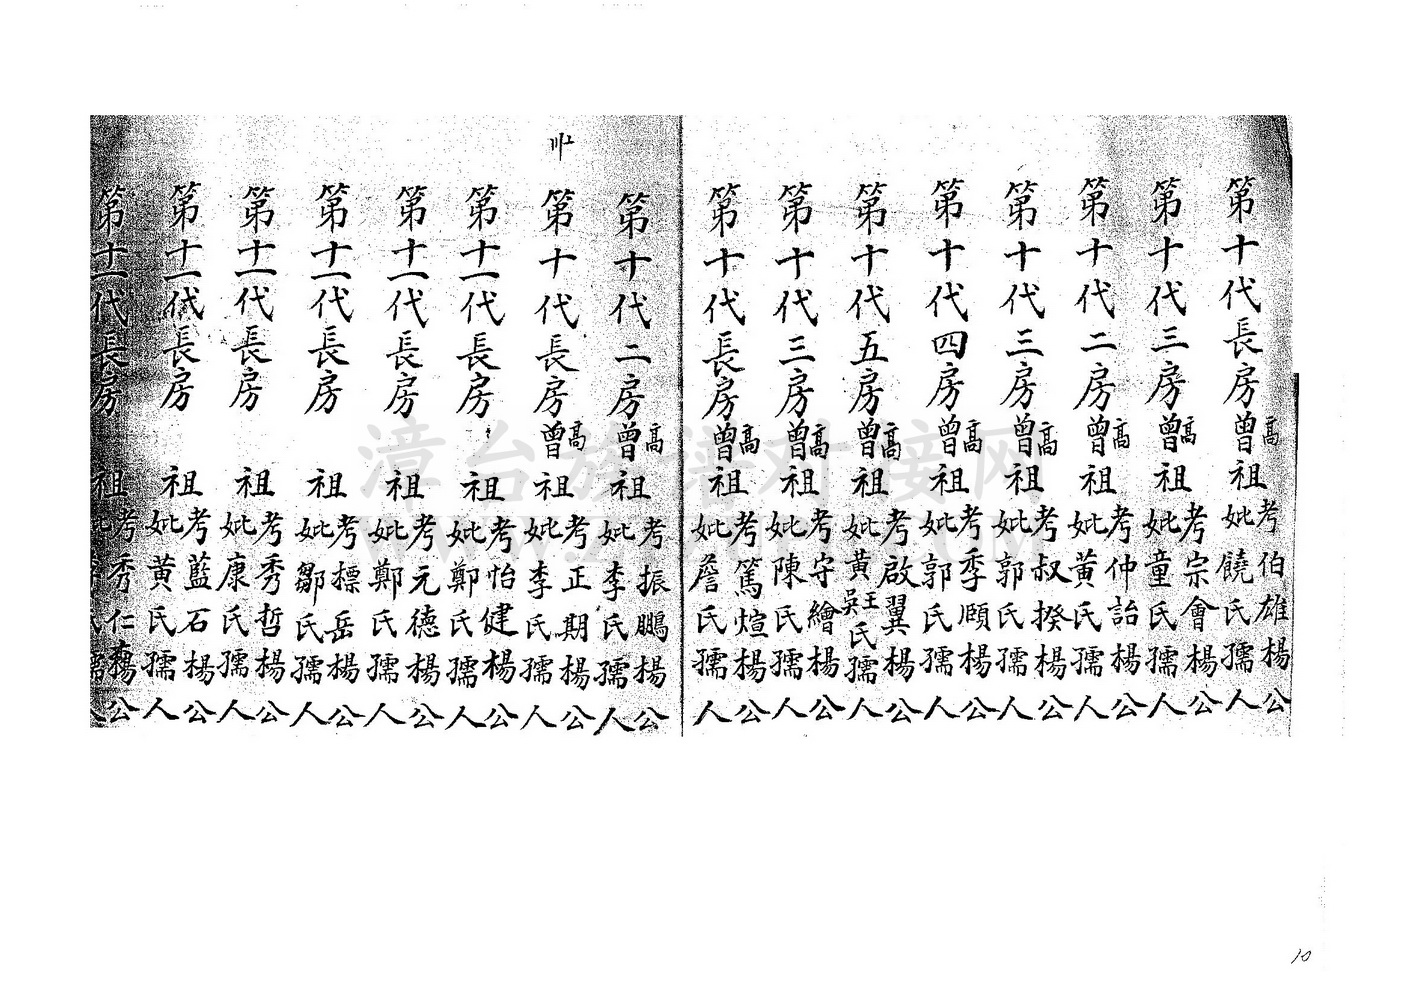 第十代長房高曾祖考伯雄楊公妣饒氏孺人
第十代三房高曾祖考宗會楊公妣童氏孺人
第十代二房高曾祖考仲詒楊公妣黃氏孺人
第十代三房高曾祖考叔揆楊公妣郭氏孺人
第十代四房高曾祖考季頤楊公妣郭氏孺人
第十代五房高曾祖考啟翼楊公妣黃吳王氏孺人
第十代三房高曾祖考守繪楊公妣陳氏孺人
第十代長房高曾祖考篤煊楊公妣詹氏孺人
第十代二房高曾祖考振鵬楊公妣李氏孺人
第十代長房高曾祖考正期楊公妣李氏孺人
第十一代長房祖考怡健楊公妣鄭氏孺人
第十一代長房祖考元德楊公妣鄭氏孺人
第十一代長房祖考標岳楊公妣鄒氏孺人
第十一代長房祖考秀哲楊公妣康氏孺人
第十一代長房祖考藍石楊公妣黃氏孺人
第十一代長房祖考秀仁楊公妣氏孺人
漳台族谱对接网
10